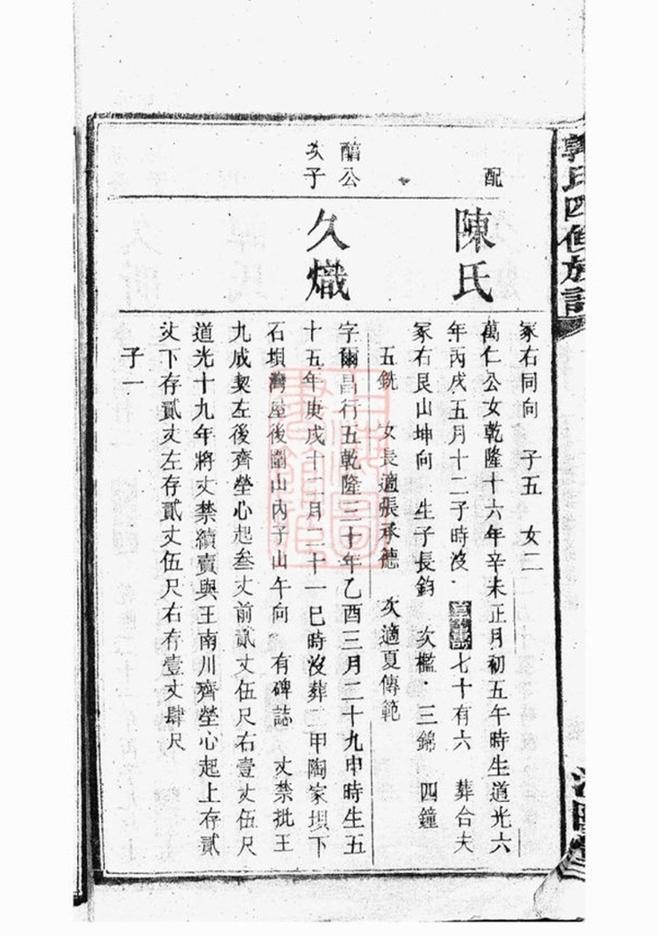 郭氏四修族譜
冢右同向 子五 女二
配
陳氏
萬仁公女乾隆十六年辛未正月初五午時生道光六
年丙戌五月十二子時沒 七十有六 葬合夫
冢右艮山坤向 生子長鈞 次檻 三錦 四鐘
五銑 女長適張承德 次適夏傳範
醕公
次子
久熾
字爾昌行五乾隆三十年乙酉三月二十九申時生五
十五年庚戌十二月二十一巳時沒葬二甲陶家垻下
石垻灣屋後圍山內子山午向 有碑誌 丈禁批王
九成契左後齊塋心起叁丈前貳丈伍尺右壹丈伍尺
道光十九年將丈禁續賣與王南川齊塋心起上存貳
丈下存貳丈左存貳丈伍尺右存壹丈肆尺
子一